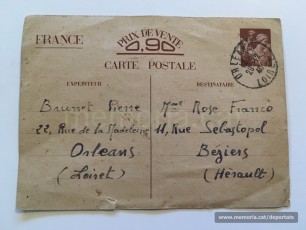 FRANCE
PRIX DE VENTE
0,90
CARTE POSTALE
EXPÉDITEUR
DESTINATAIRE
Brunet Pierre
22, Rue de la Madeleine
Orléans
(Loiret)
Mme Rose Franco
11, Rue Sébastopol
Béziers
(Hérault)
www.memoria.cat/deportats